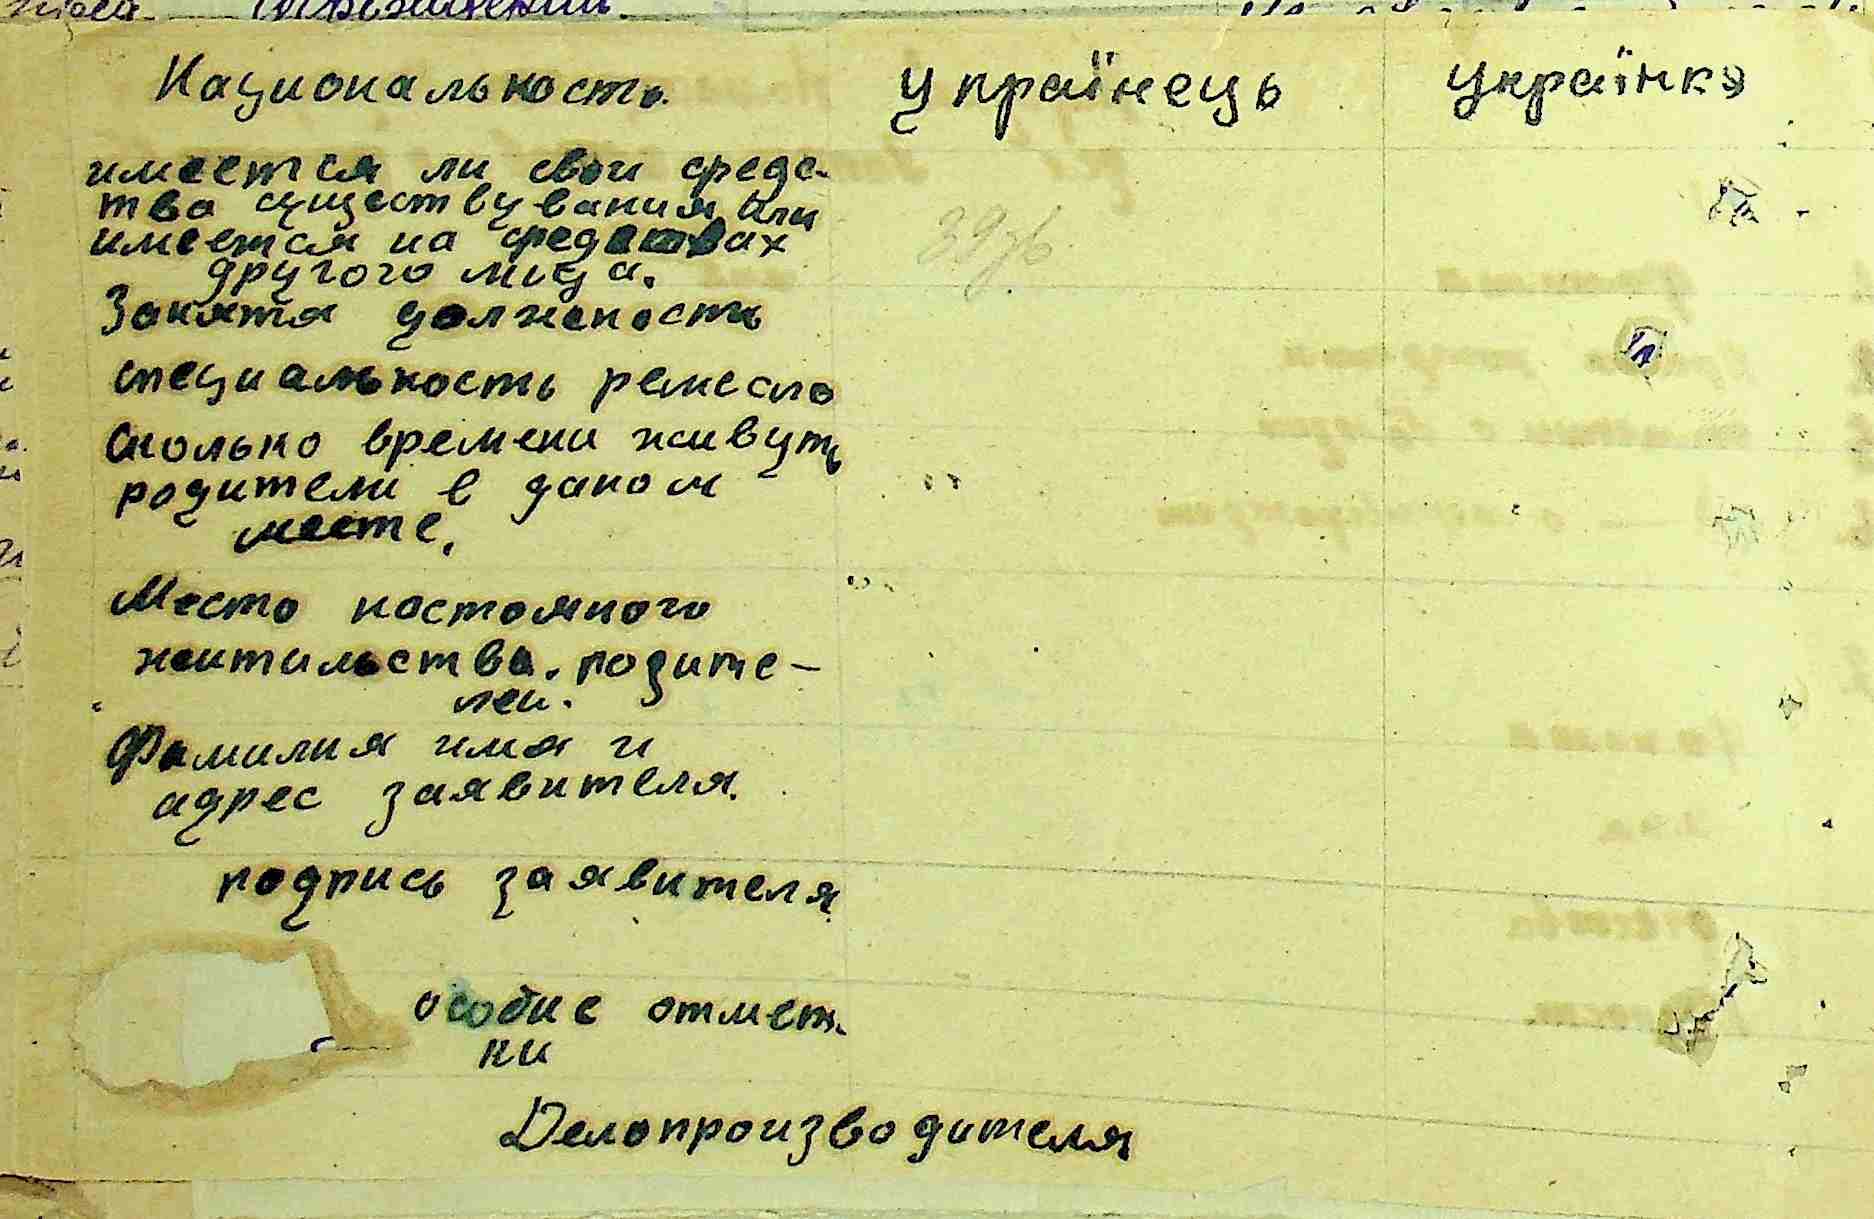 Национальность українець українка
имеется ли свои средс-
тва существувания или
имеется на средствах
другого лица.
Занятя должность
специальность ремесло
Сколько времени живуть
родители в даном
месте.
Место постояного
жительства. родите-
лей.
Фамилия имя и
адрес заявителя.
подпись заявителя
особие отмет-
ки
Делопроизводителя